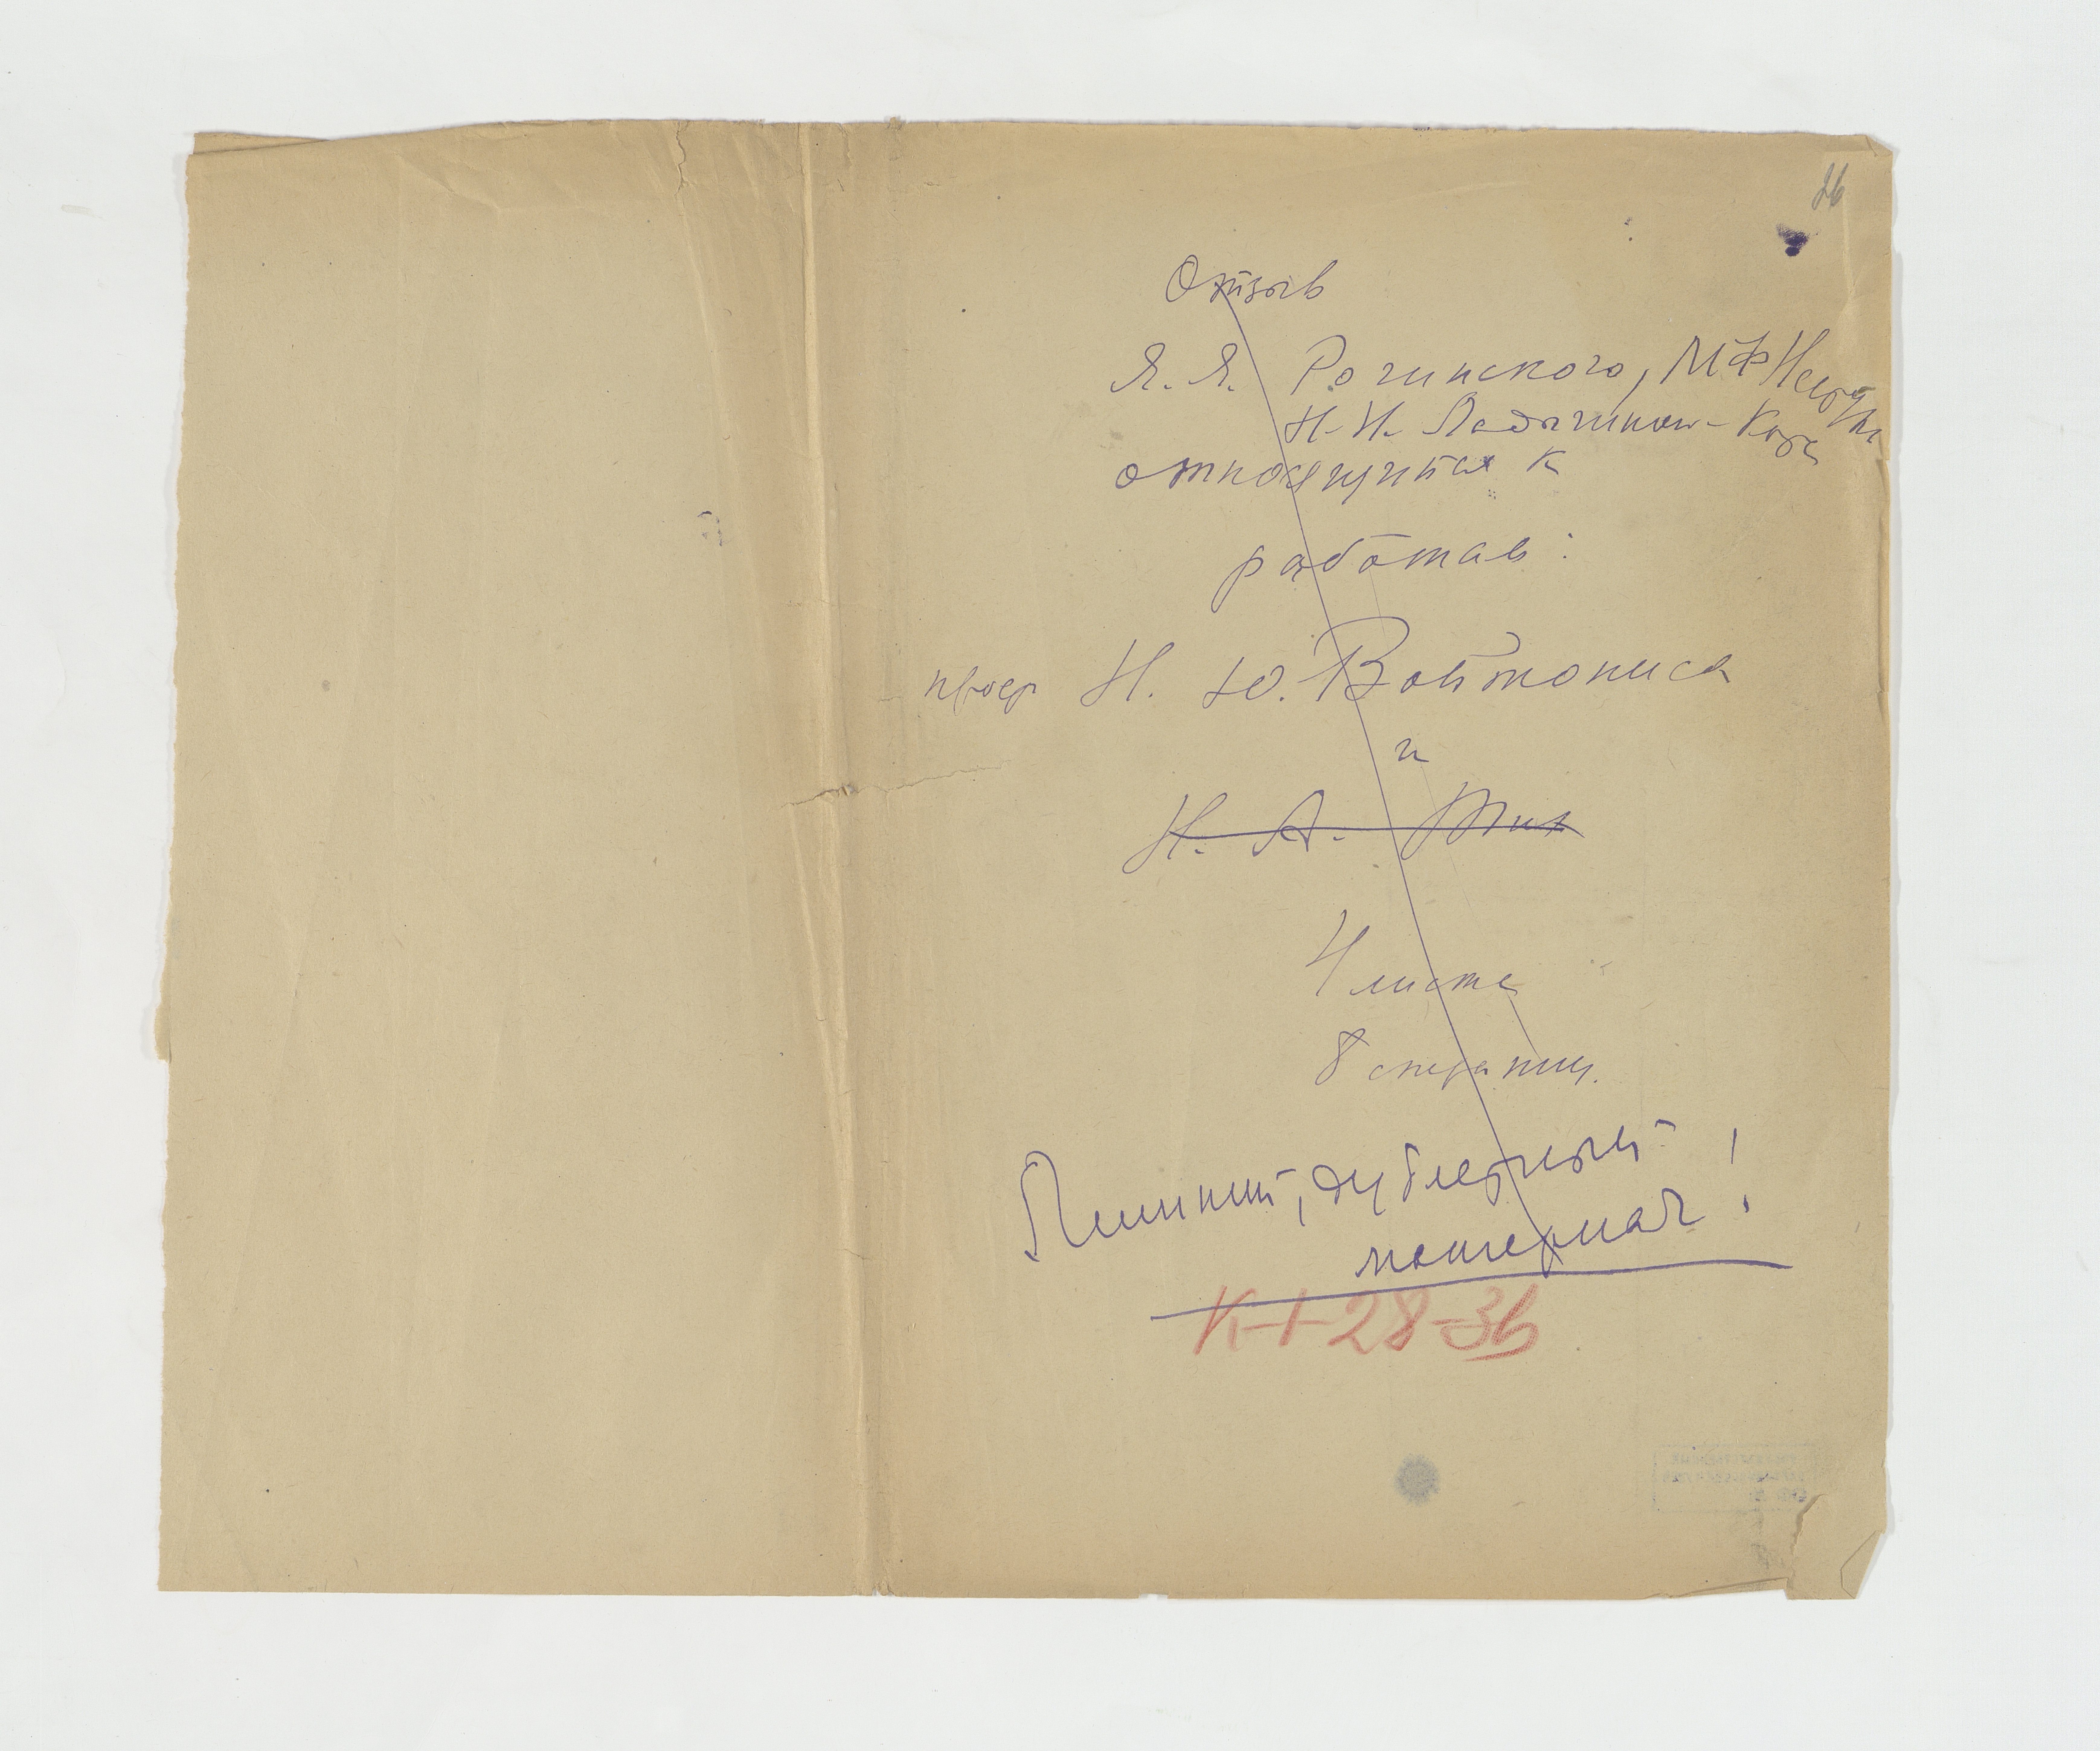 26
Отзыв
Я. Я. Рогинского, М Ф Нестурх
Н. Н. Ладыгиной-Котс
относящийся к
работам:
проф Н. Ю. Войтониса
и
Н. А. Тих
4 листа
8 страниц.
Лишний, дублетный
материал!
К-1-28-36